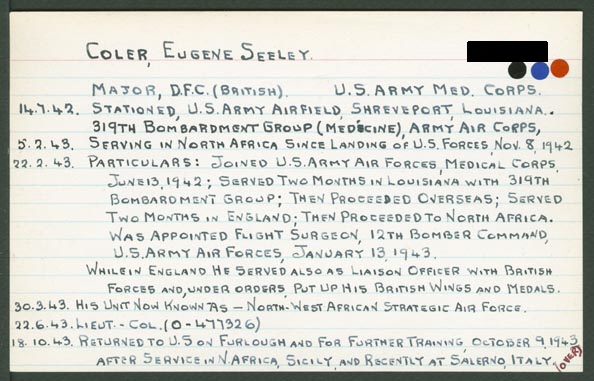 COLER, EUGENE SEELEY.
MAJOR, D.F.C. (BRITISH). U.S. ARMY MED. CORPS.
14.7.42. STATIONED, U.S. ARMY AIRFIELD, SHREVEPORT, LOUISIANA..
319TH BOMBARDMENT GROUP (MEDECINE), ARMY AIR CORPS,
5.2.43. SERVING IN NORTH AFRICA SINCE LANDING OF U.S. FORCES, NOV. 8, 1942
22.2.43. PARTICULARS: JOINED U.S. ARMY AIR FORCES, MEDICAL CORPS,
JUNE 13, 1942; SERVED TWO MONTHS IN LOUISIANA WITH 319TH
BOMBARDMENT GROUP; THEN PROCEEDED OVERSEAS; SERVED
TWO MONTHS IN ENGLAND; THEN PROCEEDED TO NORTH AFRICA.
WAS APPOINTED FLIGHT SURGEON, 12TH BOMBER COMMAND,
U.S. ARMY AIR FORCES, JANUARY 13, 1943.
WHILE IN ENGLAND HE SERVED ALSO AS LIAISON OFFICER WITH BRITISH
FORCES AND, UNDER ORDERS, PUT UP HIS BRITISH WINGS AND MEDALS.
30.3.43. HIS UNIT NOW KNOWN AS - NORTH-WEST AFRICAN STRATEGIC AIR FORCE.
22.6.43. LIEUT.-COL. (O-477326)
18.10.43. RETURNED TO U.S ON FURLOUGH AND FOR FURTHER TRAINING, OCTOBER 9, 1943
AFTER SERVICE IN N. AFRICA, SICILY, AND RECENTLY AT SALERNO, ITALY.
(OVER)